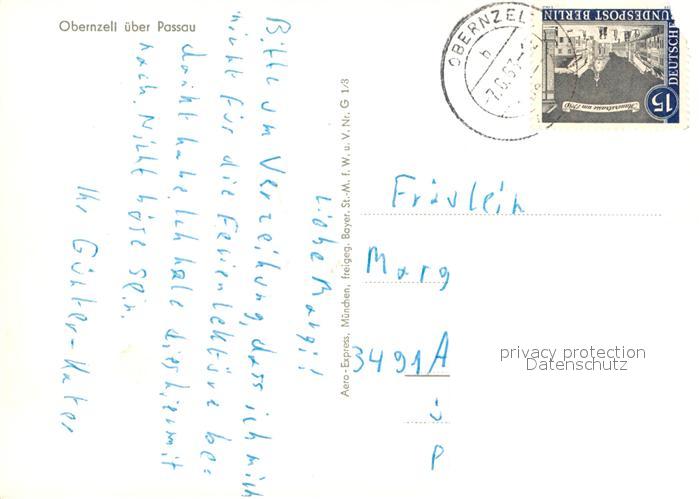 Obernzell über Passau
Liebe Margi!
Bitte um Verzeihung, dass ich mich
nicht für die Ferienlektüre be=
dankt habe. Ich hole dies hiermit
nach. Nicht böse sein.
Ihr Günter-Kater
Aero-Express, München, freigeg. Bayer. St.-M. f. W. u. V. Nr. G 1/3
OBERNZELL
b
-7.6.63
DEUTSCHE
BUNDESPOST BERLIN
15
Mauerstrasse um 1780
Fräulein
Marg
3491A
i
P
privacy protection
Datenschutz